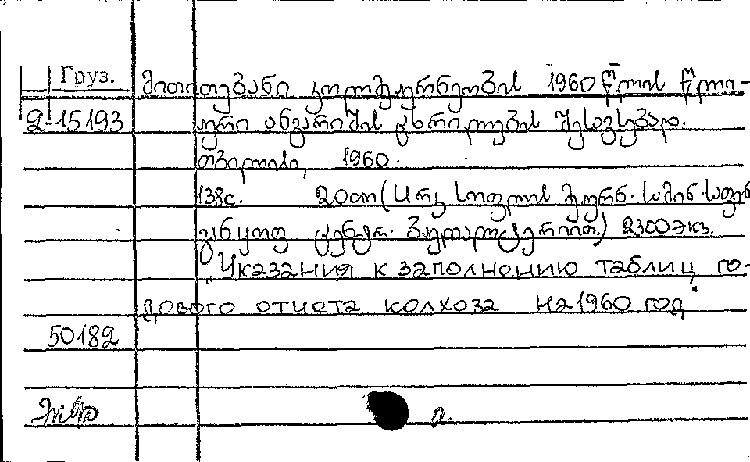 Груз.
მითითებანი კოლმეურნეობის 1960 წლის წლი-
2-15193
ური ანგარიშის ცხრილების შესავსებად.
თბილისი, 1960.
138с. 20სთ (სსრკ სოფლის მეურნ. სამინ.
ცენტრ. ბუღალტერია) 2300 экз.
"Указания к заполнению таблиц го-
дового отчета колхоза на 1960 год"
50182
п.